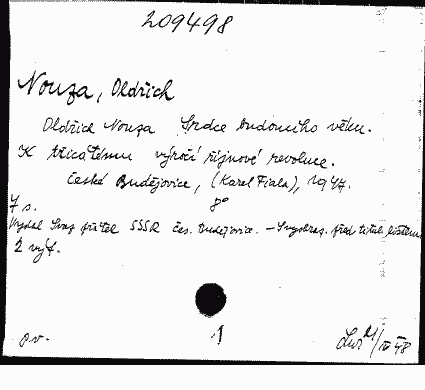 209498
Nouza, Oldřich
Oldřich Nouza Srdce budoucího věku.
K třicátému výročí říjnové revoluce.
České Budějovice, (Karel Fiala), 1947.
8°
7 s.
Vydal Svaz přátel SSSR Čes. Budějovice. – 1 vyobraz. před titul. listem
2 výt.
pv.
1
48